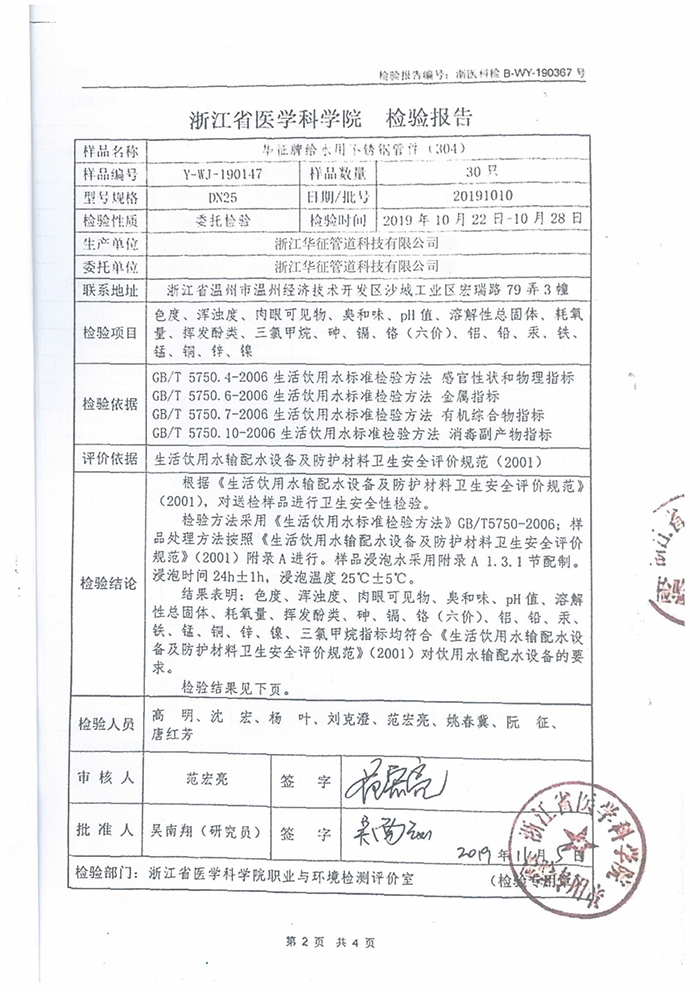 检验报告编号：南医科检 B-WY-190367 号
浙江省医学科学院 检验报告
样品名称 华征牌给水用不锈钢管件（304）
样品编号 Y-WJ-190147 样品数量 30 只
型号规格 DN25 日期/批号 20191010
检验性质 委托检验 检验时间 2019 年 10 月 22 日-10 月 28 日
生产单位 浙江华征管道科技有限公司
委托单位 浙江华征管道科技有限公司
联系地址 浙江省温州市温州经济技术开发区沙城工业区宏瑞路 79 弄 3 幢
检验项目
色度、浑浊度、肉眼可见物、臭和味、pH 值、溶解性总固体、耗氧
量、挥发酚类、三氯甲烷、砷、镉、铬（六价）、铝、铅、汞、铁、
锰、铜、锌、镍
检验依据
GB/T 5750.4-2006 生活饮用水标准检验方法 感官性状和物理指标
GB/T 5750.6-2006 生活饮用水标准检验方法 金属指标
GB/T 5750.7-2006 生活饮用水标准检验方法 有机综合物指标
GB/T 5750.10-2006 生活饮用水标准检验方法 消毒副产物指标
评价依据 生活饮用水输配水设备及防护材料卫生安全评价规范（2001）
检验结论
根据《生活饮用水输配水设备及防护材料卫生安全评价规范》
（2001），对送检样品进行卫生安全性检验。
检验方法采用《生活饮用水标准检验方法》GB/T5750-2006；样
品处理方法按照《生活饮用水输配水设备及防护材料卫生安全评价
规范》（2001）附录 A 进行。样品浸泡水采用附录 A 1.3.1 节配制。
浸泡时间 24h±1h，浸泡温度 25℃±5℃。
结果表明：色度、浑浊度、肉眼可见物、臭和味、pH 值、溶解
性总固体、耗氧量、挥发酚类、砷、镉、铬（六价）、铝、铅、汞、
铁、锰、铜、锌、镍、三氯甲烷指标均符合《生活饮用水输配水设
备及防护材料卫生安全评价规范》（2001）对饮用水输配水设备的要
求。
检验结果见下页。
检验人员
高 明、沈 宏、杨 叶、刘克澄、范宏亮、姚春冀、阮 征、
唐红芳
审 核 人 范宏亮 签 字 范宏亮
批 准 人 吴南翔（研究员） 签 字
2019 年 11 月 5 日
检验部门：浙江省医学科学院职业与环境检测评价室 （检验专用章）
浙江省医学科学院
第 2 页 共 4 页